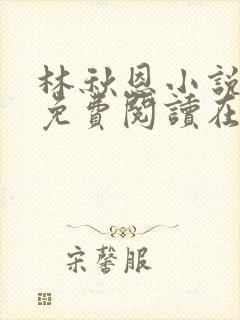 林秋恩小說
免費閱讀在
宋馨服